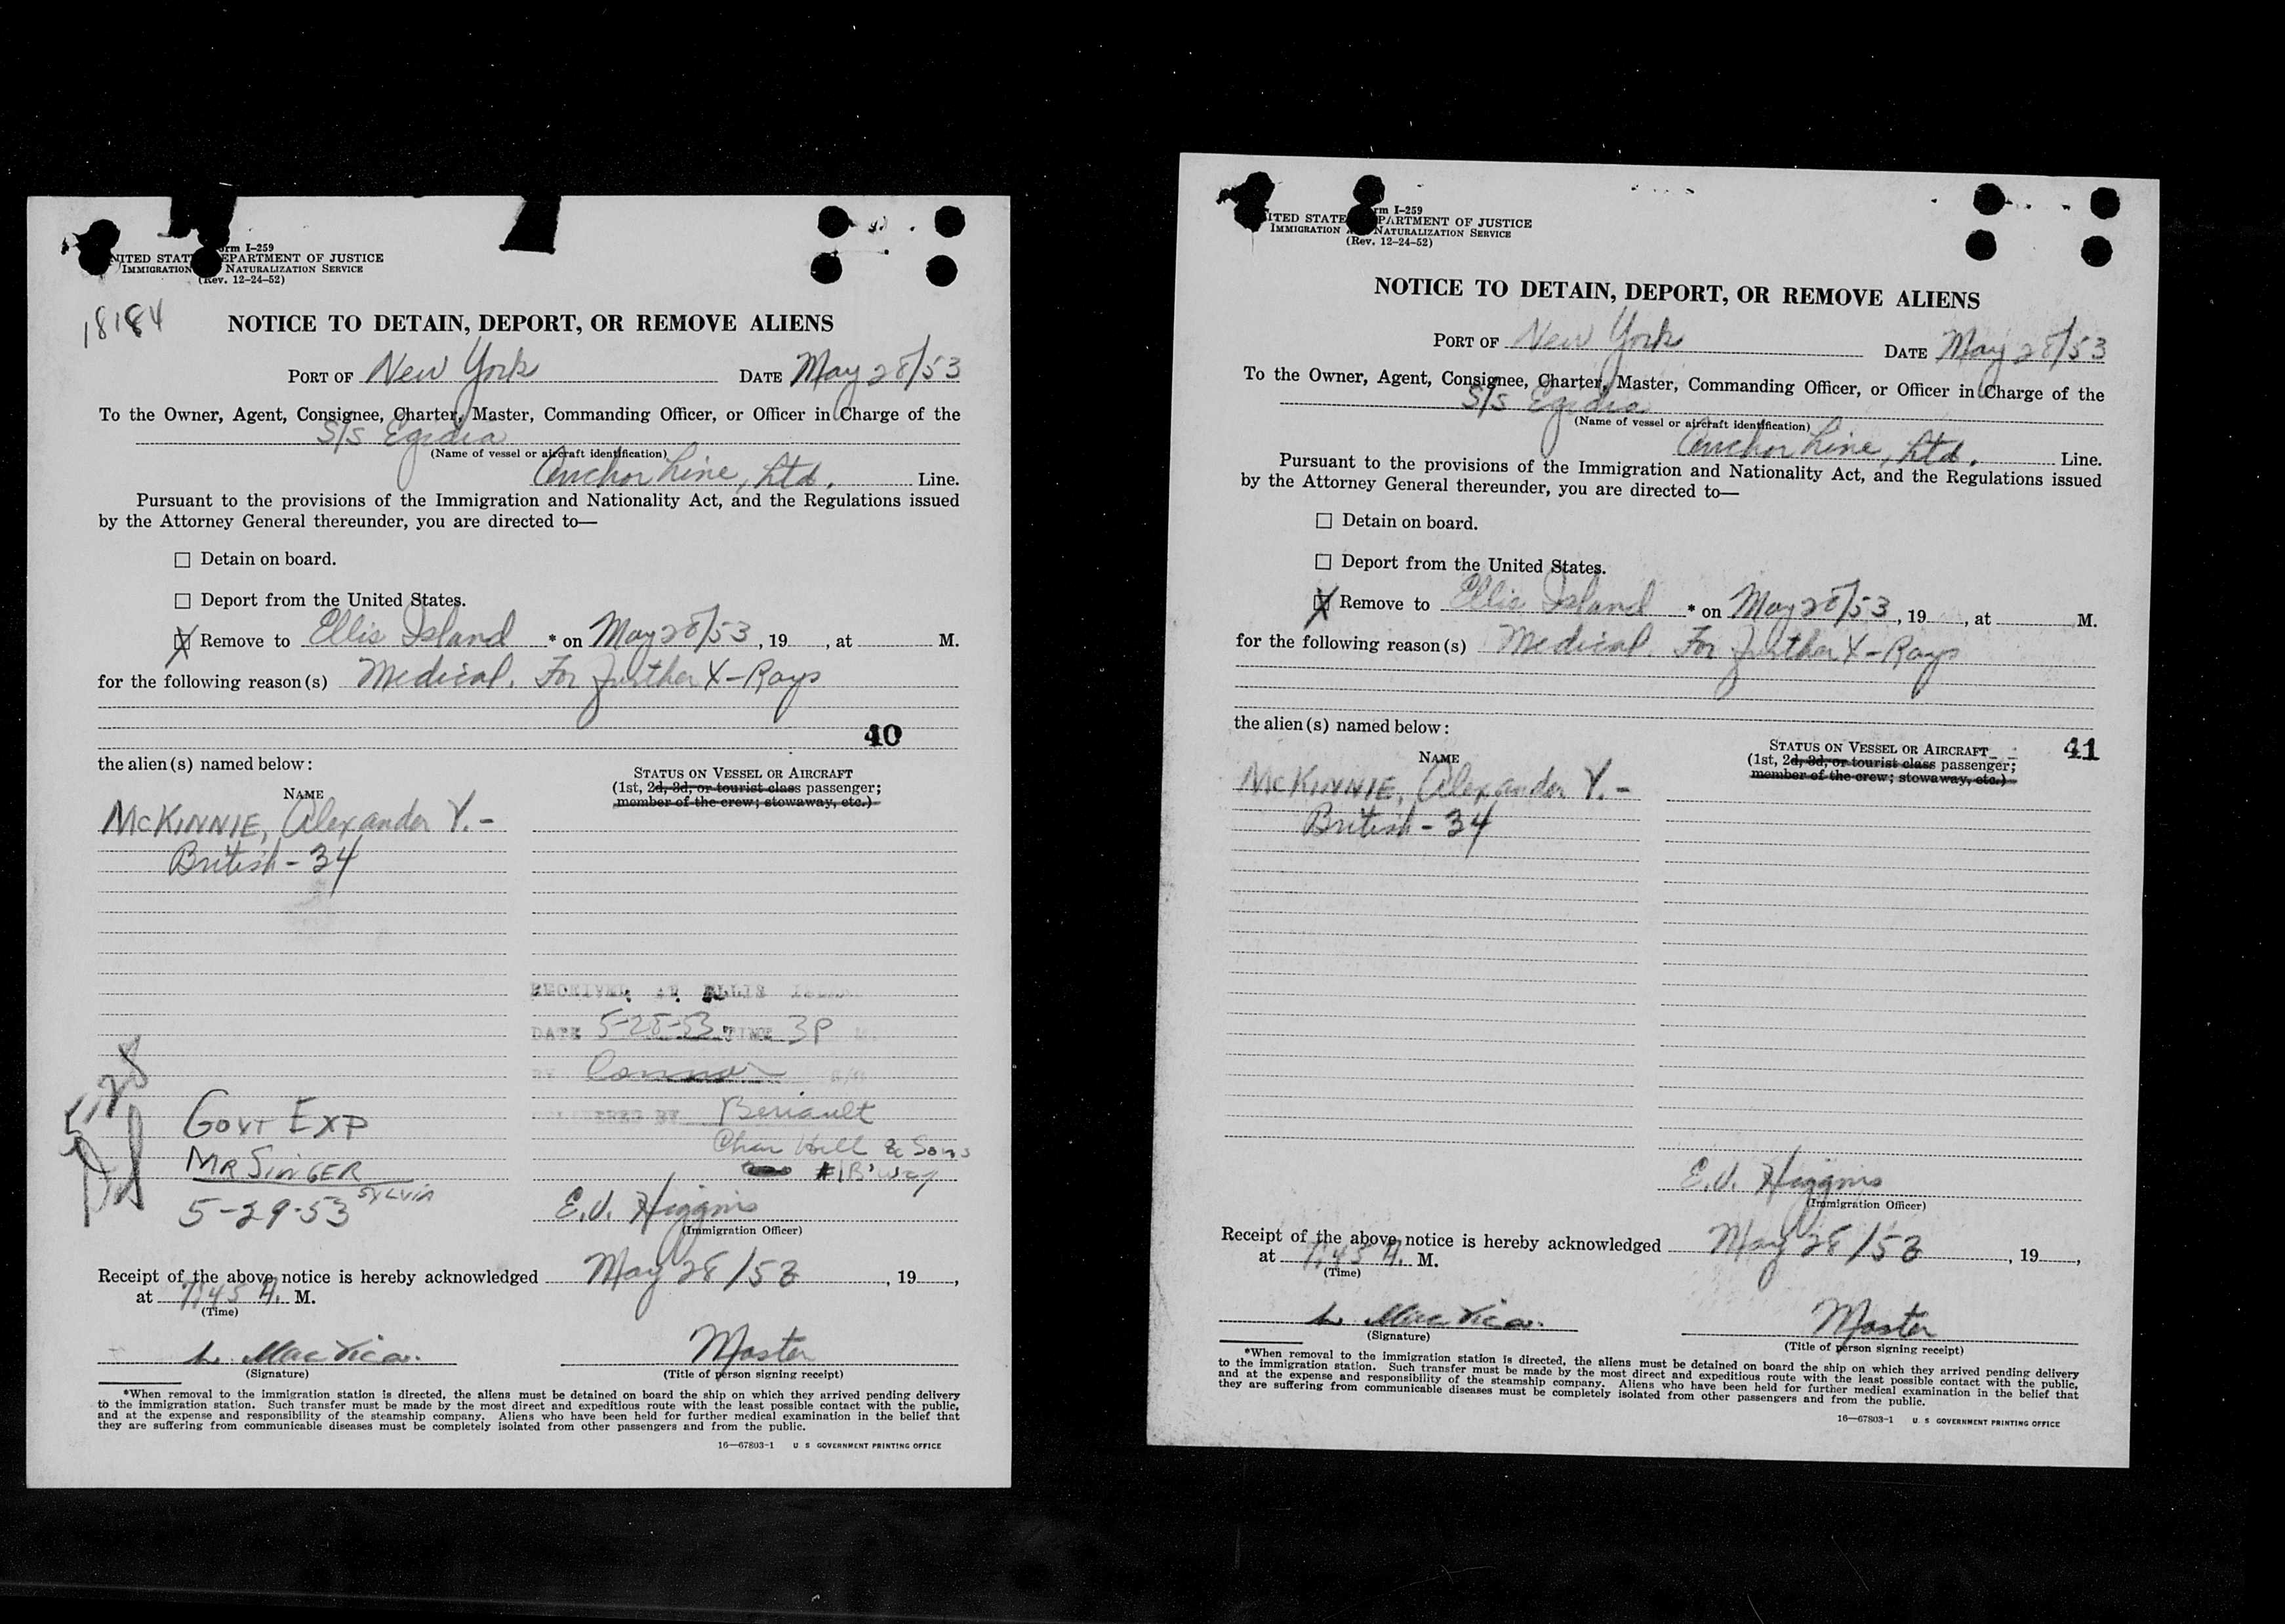 Form I-259
UNITED STATES DEPARTMENT OF JUSTICE
IMMIGRATION NATURALIZATION SERVICE
(Rev. 12-24-52)
18184
NOTICE TO DETAIN, DEPORT, OR REMOVE ALIENS
PORT OF New York DATE May 28/53
To the Owner, Agent, Consignee, Charter, Master, Commanding Officer, or Officer in Charge of the
S/s Egidia
(Name of vessel or aircraft identification)
Anchor Line, Ltd. Line.
Pursuant to the provisions of the Immigration and Nationality Act, and the Regulations issued
by the Attorney General thereunder, you are directed to—
☐ Detain on board.
☐ Deport from the United States.
☒ Remove to Ellis Island * on May 28/53, 19 , at M.
for the following reason(s) Medical. For further X-Rays
40
the alien(s) named below:
NAME
STATUS ON VESSEL OR AIRCRAFT
(1st, 2d, 3d, or tourist class passenger;
member of the crew; stowaway, etc.)
McKINNIE, Alexander Y. -
British - 34
RECEIVED AT ELLIS ISLAND
DATE 5-28-53 TIME 3P M.
BY Connor
DELIVERED BY Beriault
Chas Hill & Sons
#1 B'way
5/28
GOVT EXP
MR SINGER
SYLVIA
5-29-53
E.V. Higgins
(Immigration Officer)
Receipt of the above notice is hereby acknowledged May 28/53, 19 ,
at 7:45 A. M.
(Time)
MacVicar
Master
(Signature)
(Title of person signing receipt)
*When removal to the immigration station is directed, the aliens must be detained on board the ship on which they arrived pending delivery
to the immigration station. Such transfer must be made by the most direct and expeditious route with the least possible contact with the public,
and at the expense and responsibility of the steamship company. Aliens who have been held for further medical examination in the belief that
they are suffering from communicable diseases must be completely isolated from other passengers and from the public.
16—67803-1 U S GOVERNMENT PRINTING OFFICE
Form I-259
UNITED STATES DEPARTMENT OF JUSTICE
IMMIGRATION NATURALIZATION SERVICE
(Rev. 12-24-52)
NOTICE TO DETAIN, DEPORT, OR REMOVE ALIENS
PORT OF New York DATE May 28/53
To the Owner, Agent, Consignee, Charter, Master, Commanding Officer, or Officer in Charge of the
S/s Egidia
(Name of vessel or aircraft identification)
Anchor Line, Ltd. Line.
Pursuant to the provisions of the Immigration and Nationality Act, and the Regulations issued
by the Attorney General thereunder, you are directed to—
☐ Detain on board.
☐ Deport from the United States.
☒ Remove to Ellis Island * on May 28/53, 19 , at M.
for the following reason(s) Medical. For further X-Rays
the alien(s) named below:
NAME
STATUS ON VESSEL OR AIRCRAFT
41
(1st, 2d, 3d, or tourist class passenger;
member of the crew; stowaway, etc.)
McKINNIE, Alexander Y. -
British - 34
E.V. Higgins
(Immigration Officer)
Receipt of the above notice is hereby acknowledged May 28/53, 19 ,
at 7:45 A. M.
(Time)
MacVicar
Master
(Signature)
(Title of person signing receipt)
*When removal to the immigration station is directed, the aliens must be detained on board the ship on which they arrived pending delivery
to the immigration station. Such transfer must be made by the most direct and expeditious route with the least possible contact with the public,
and at the expense and responsibility of the steamship company. Aliens who have been held for further medical examination in the belief that
they are suffering from communicable diseases must be completely isolated from other passengers and from the public.
16—67803-1 U S GOVERNMENT PRINTING OFFICE